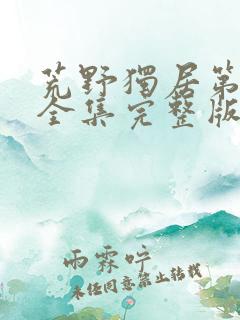 荒野獨居第
全集完整版
雨霖哼
未任同意禁止转載